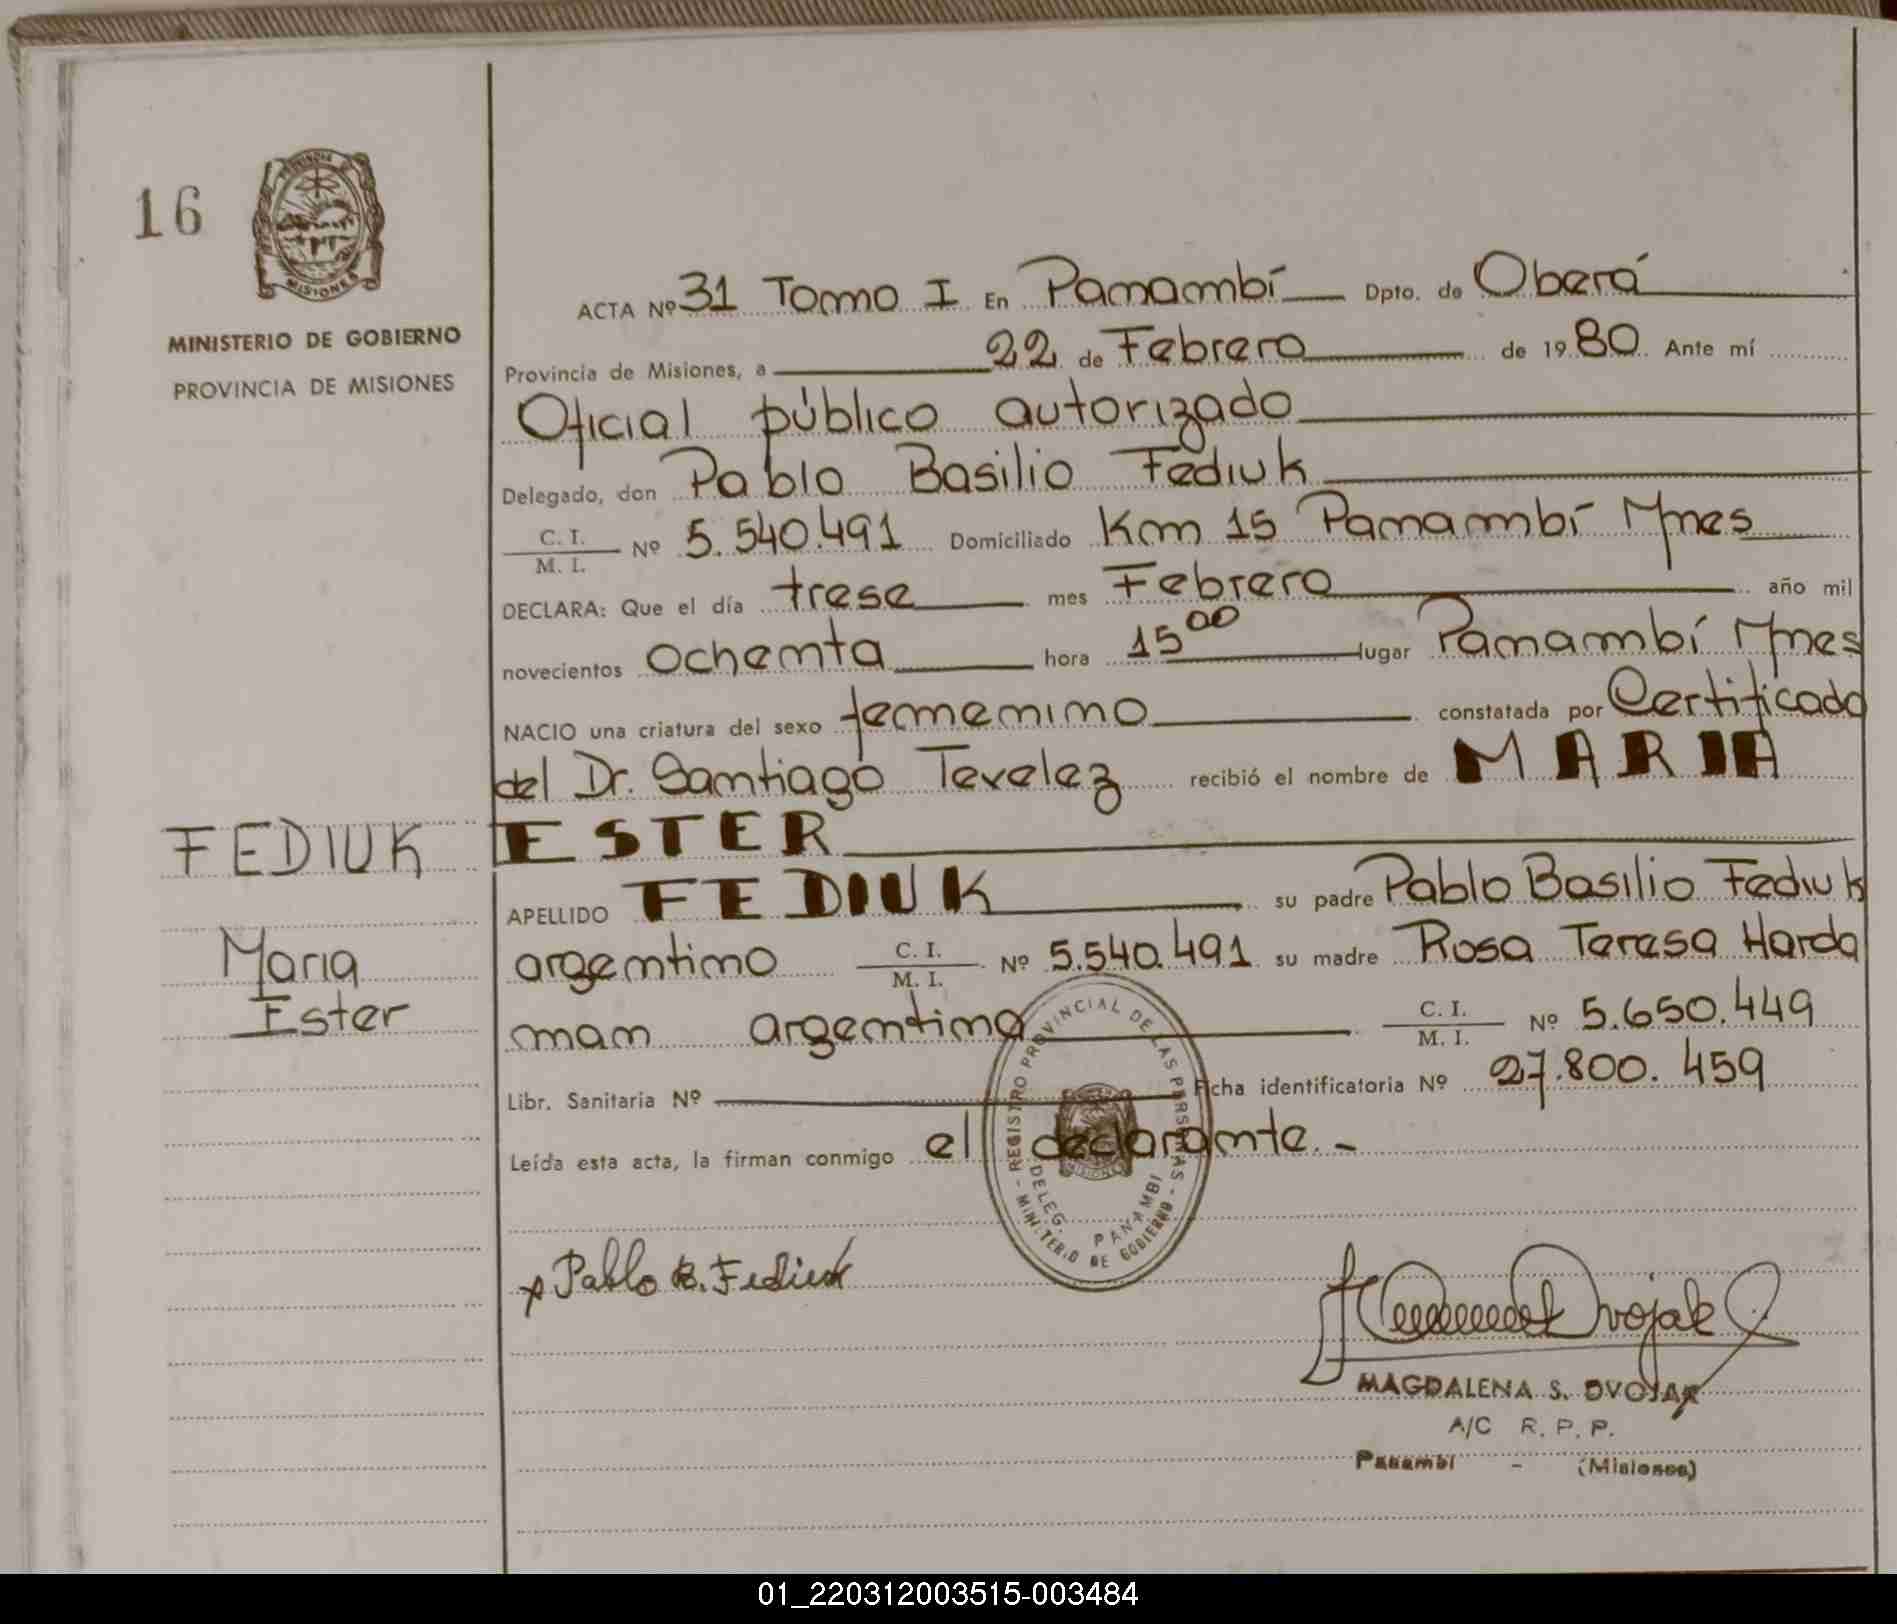 16
PROVINCIA DE
MISIONES
MINISTERIO DE GOBIERNO
PROVINCIA DE MISIONES
ACTA Nº 31 Tomo I En Panambí Dpto. de Oberá
Provincia de Misiones, a 22 de Febrero de 1980 Ante mí
Oficial público autorizado
Delegado, don Pablo Basilio Fediuk
C. I.
M. I. Nº 5.540.491 Domiciliado Km 15 Panambí Mnes
DECLARA: Que el día trese mes Febrero año mil
novecientos ochenta hora 15 00 lugar Panambí Mnes
NACIO una criatura del sexo femenino constatada por Certificado
del Dr. Santiago Tevelez recibió el nombre de MARIA
ESTER
APELLIDO FEDIUK su padre Pablo Basilio Fediuk
argentino C. I. M. I. Nº 5.540.491 su madre Rosa Teresa Harda
man argentina C. I. M. I. Nº 5.650.449
Libr. Sanitaria Nº Ficha identificatoria Nº 27.800.459
Leída esta acta, la firman conmigo el declarante.-
FEDIUK
Maria
Ester
- REGISTRO PROVINCIAL DE LAS PERSONAS -
MINISTERIO DE GOBIERNO
DELEG. PANAMBI
MISIONES
x Pablo B. Fediuk
MAGDALENA S. DVOJAK
A/C R. P. P.
Panambí - (Misiones)
01_220312003515-003484